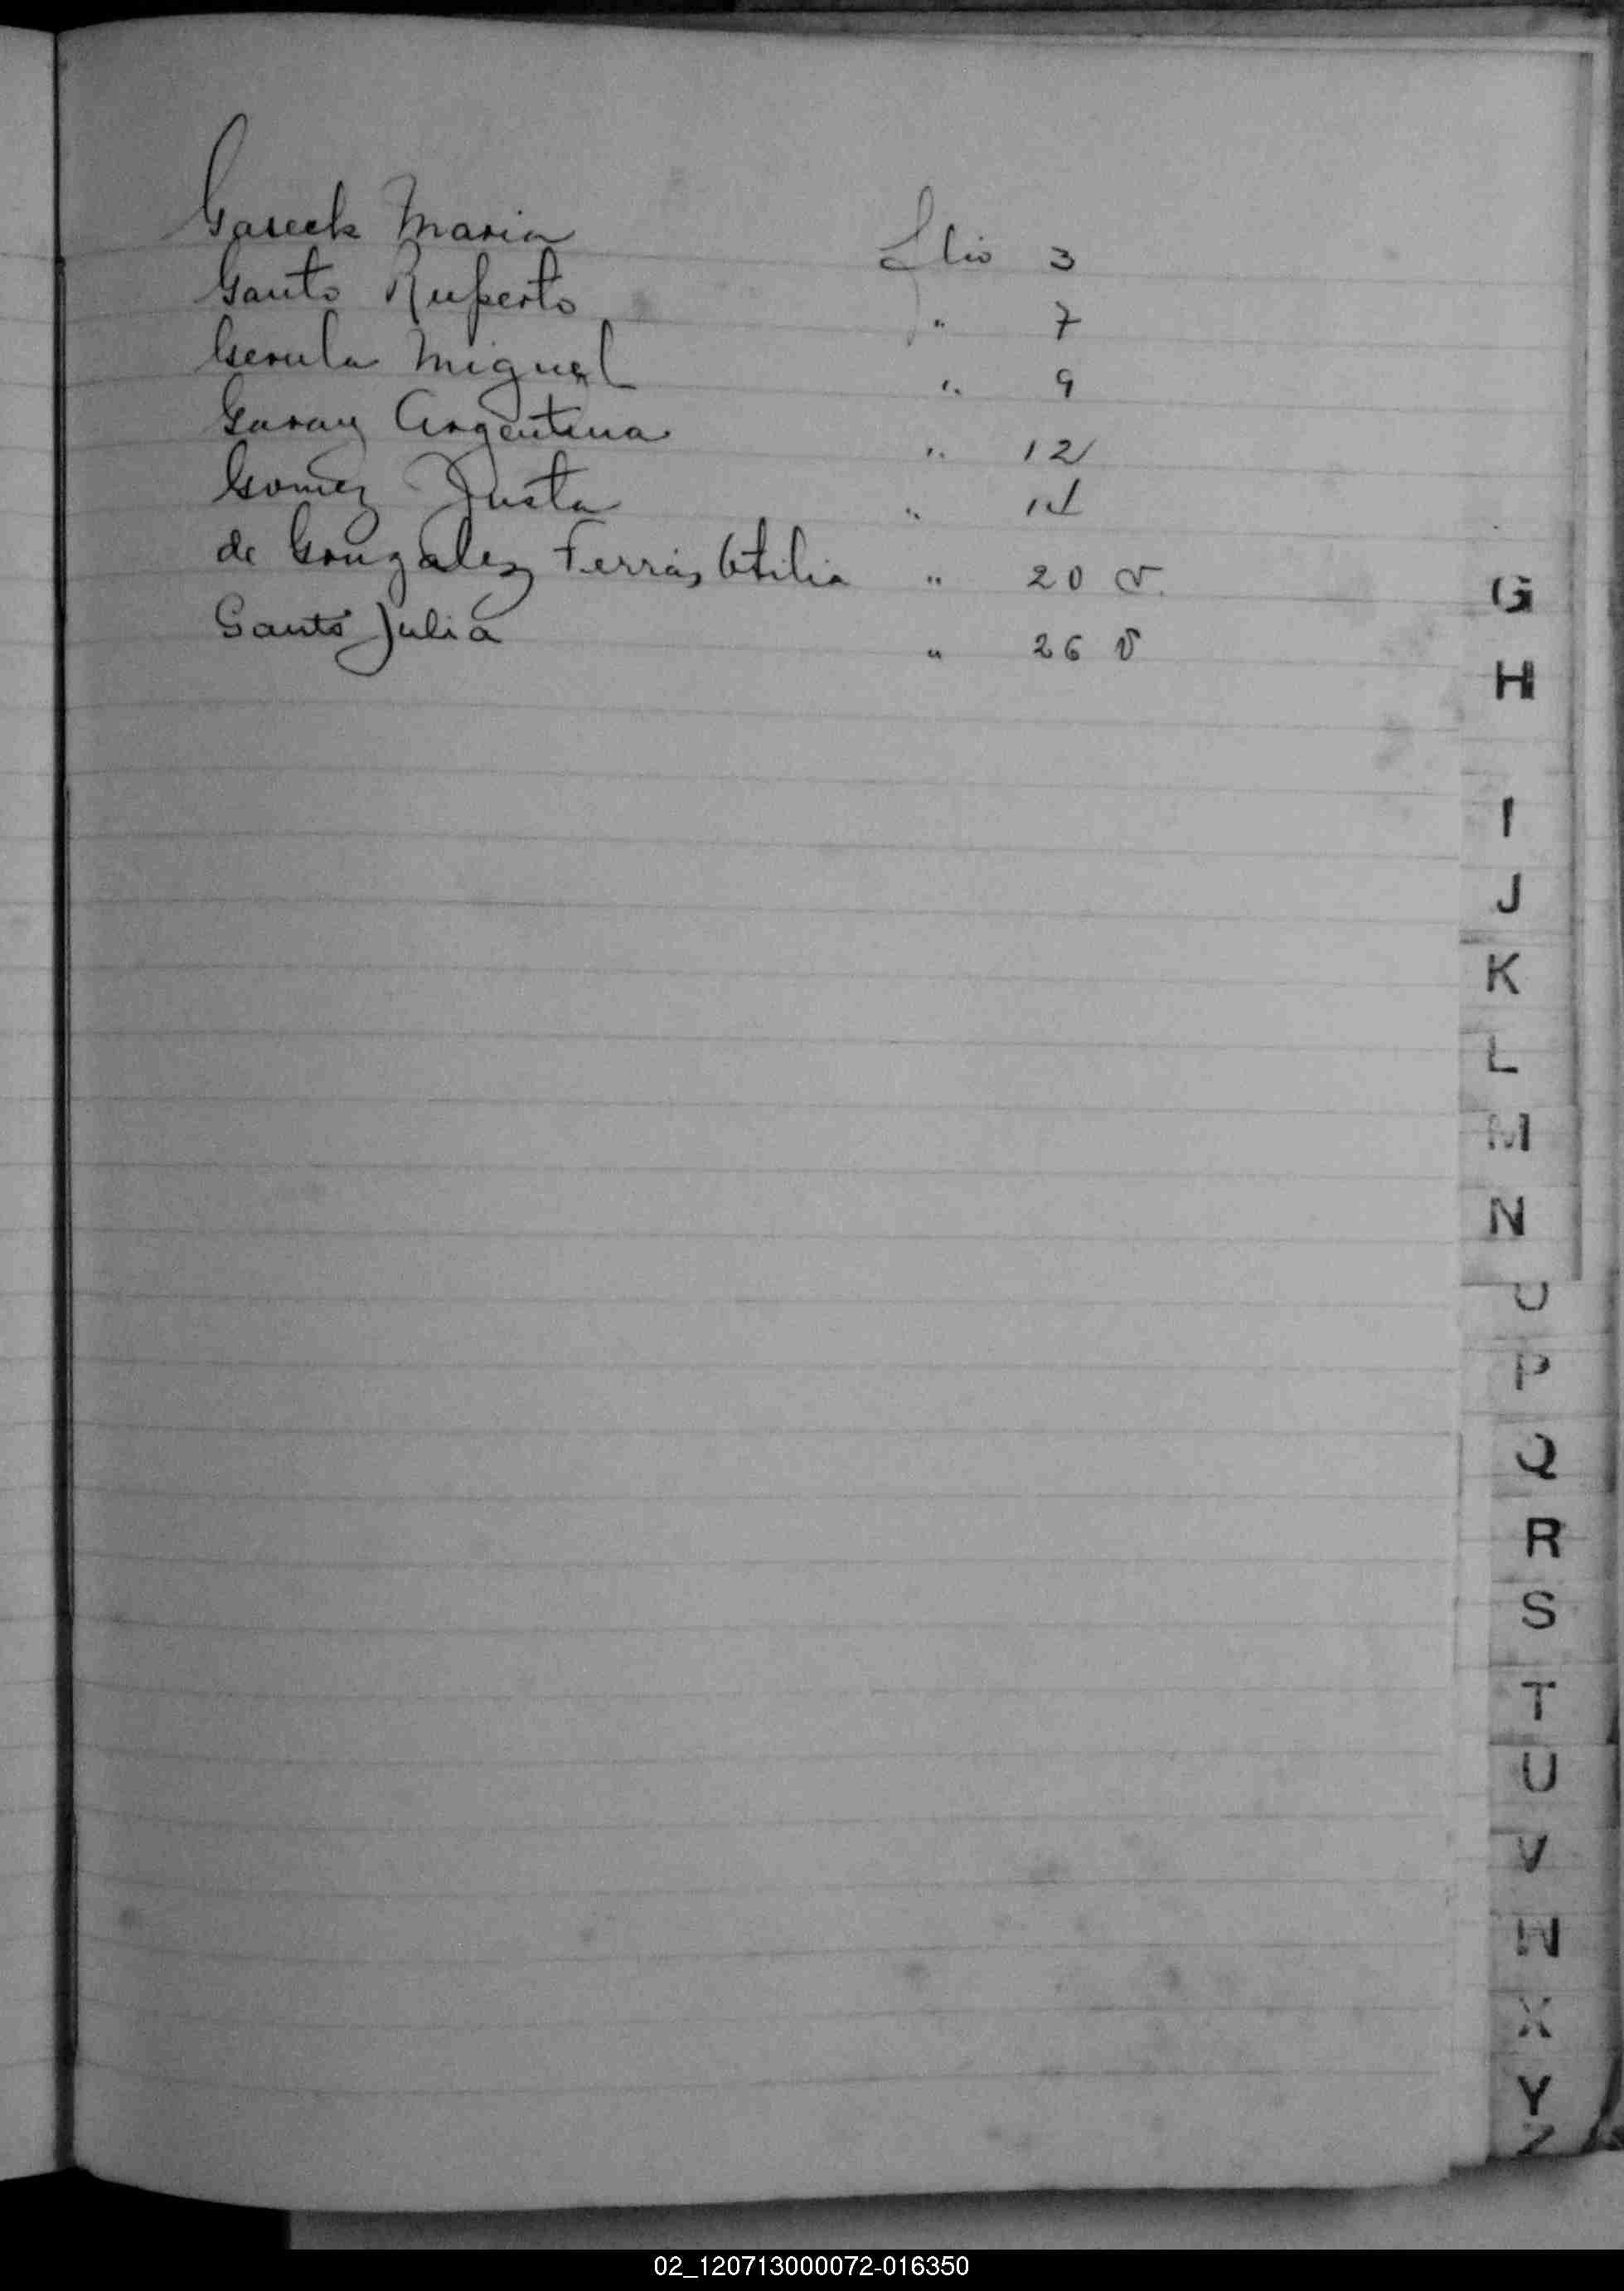 Maria flio 3
Gauto Ruperto " 7
Gerula Miguel " 9
Garay Argentina " 12
Gomez Justa " 14
de Gonzalez Ferrás Otilia " 20 v.
Gauto Julia " 26 v
G
H
I
J
K
L
M
N
O
P
Q
R
S
T
U
V
W
X
Y
Z
02_120713000072-016350